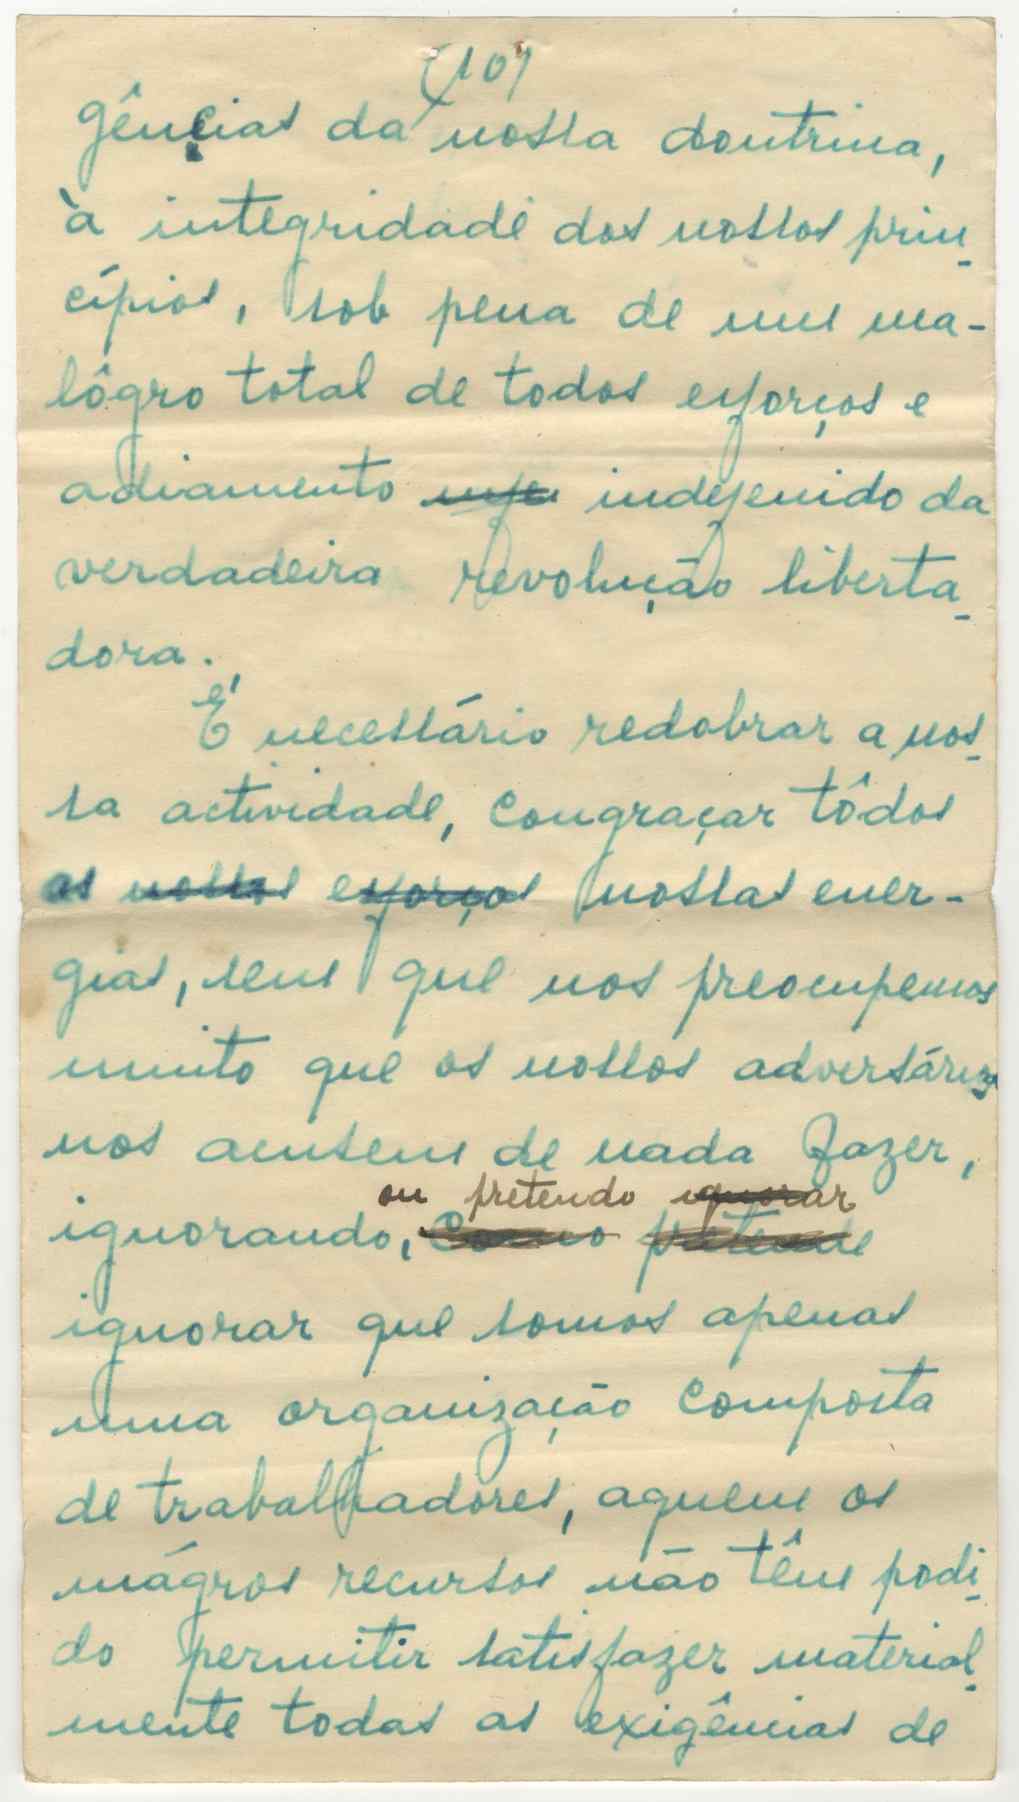 (10)
gências da nossa doutrina,
à integridade dos nossos prin-
cípios, sob pena de um ma-
lôgro total de todos esforços e
adiamento indefenido da
verdadeira revolução liberta-
dora.
É necessário redobrar a nos-
sa actividade, congraçar tôdos
as nossos esforços nossas ener-
gias, sem que nos preocupemos
muito que os nossos adversários
nos acusem de nada fazer,
ou pretendo ignorar
ignorando, como pretende
ignorar que somos apenas
uma organização composta
de trabalhadores, aquem os
mágros recursos não têm podi-
do permitir satisfazer material-
mente todas as exigências de